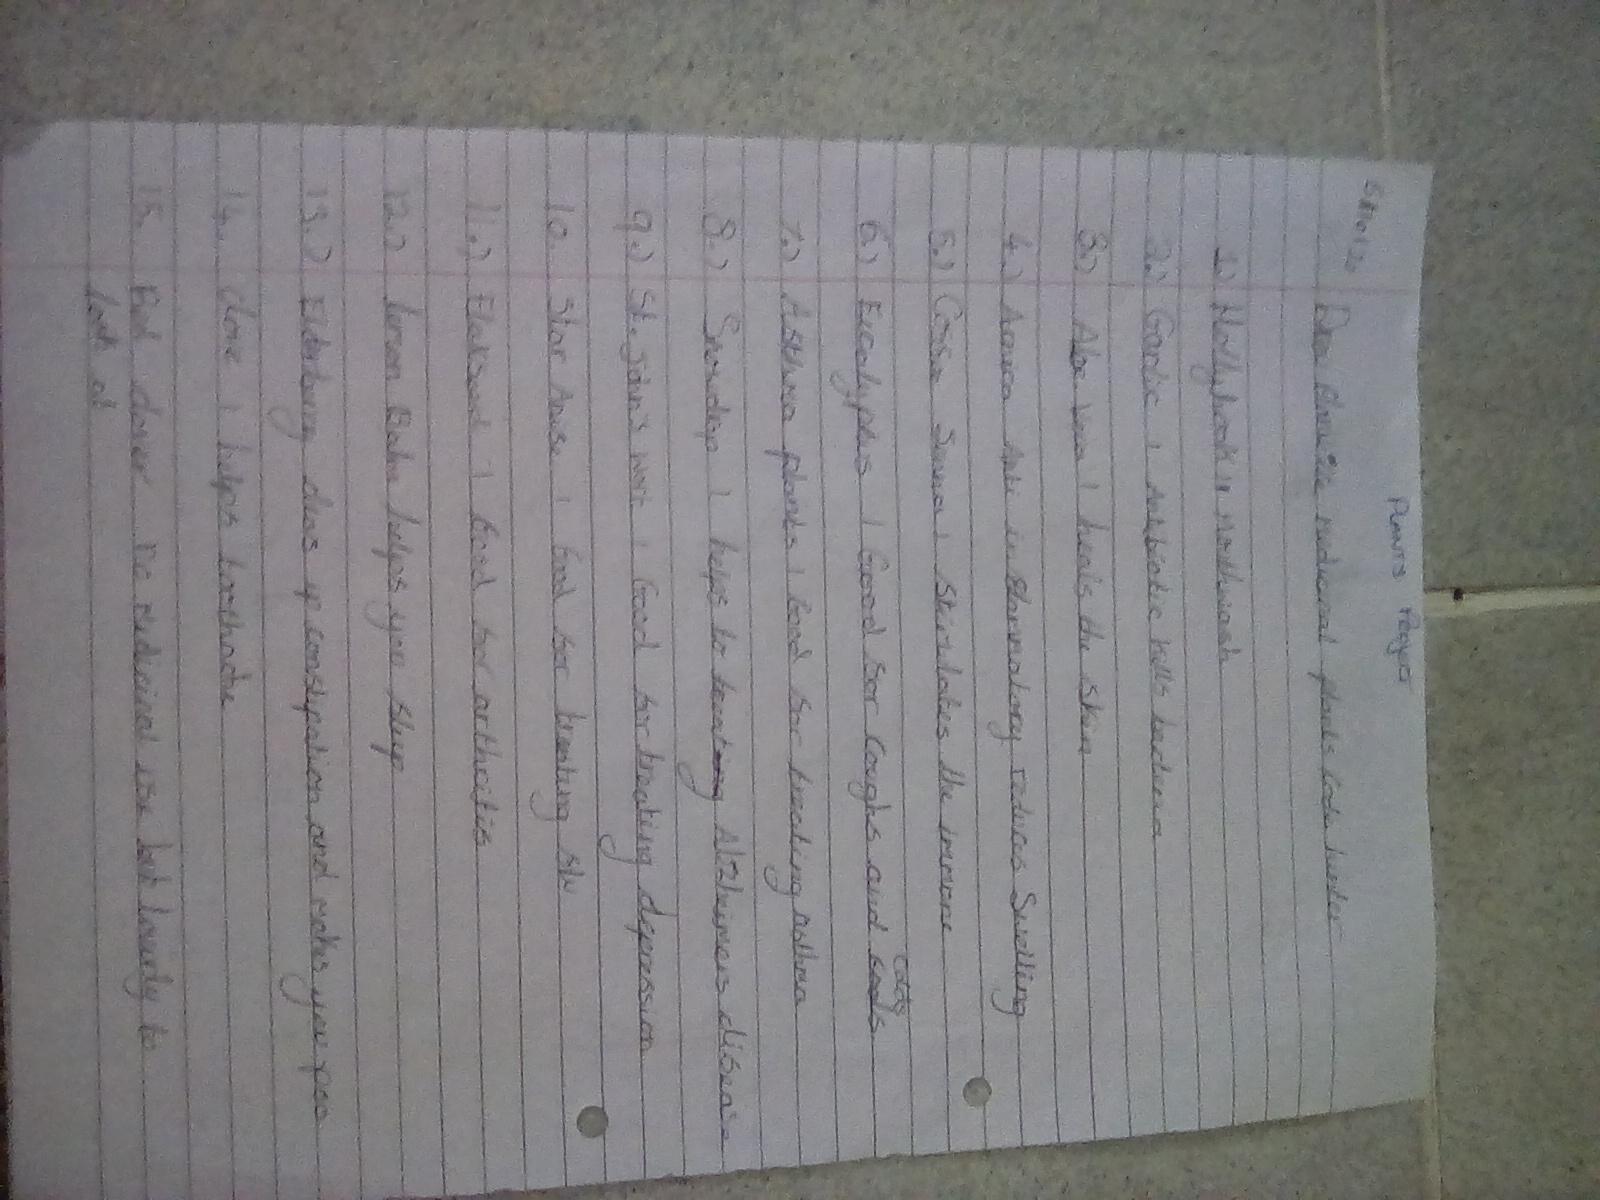 PLANTS Project
medicinal plants
1.) Hollyhock is mouthwash
2.) Garlic | Antibiotic kills bacteria
3.) Aloe Vera | heals the skin
4.) Arnica Anti inflammatory reduces Swelling
5.) Senna | Stimulates the immune
6.) Eucalyptus | Good for Coughs and colds
7.) Asthma plants | Good for treating asthma
8.) Snowdrop | helps to treating Alzheimers disease
9.) St. John's wort | Good for treating depression
10. Star Anise | Good for treating
11.) Flaxseed | Good for arthritis
12.) Lemon Balm helps you sleep
13.) Elderberry clears up constipation and makes you poo
14. Clove | helps toothache
15. Red clover no medicinal use but lovely to
look at